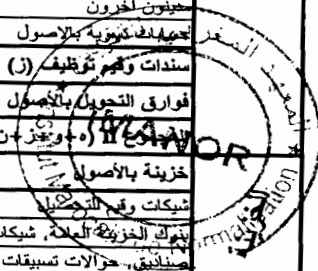 مدينون آخرون
حسابات تسوية بالأصول
سندات وقيم توظيف (ز)
فوارق التحويل بالأصول
المجموع II
خزينة بالأصول
شيكات وقيم للتحصيل
بنوك الخزينة العامة، شيكات
صناديق، حوالات تسبيقات
الخزينة
IMANOR